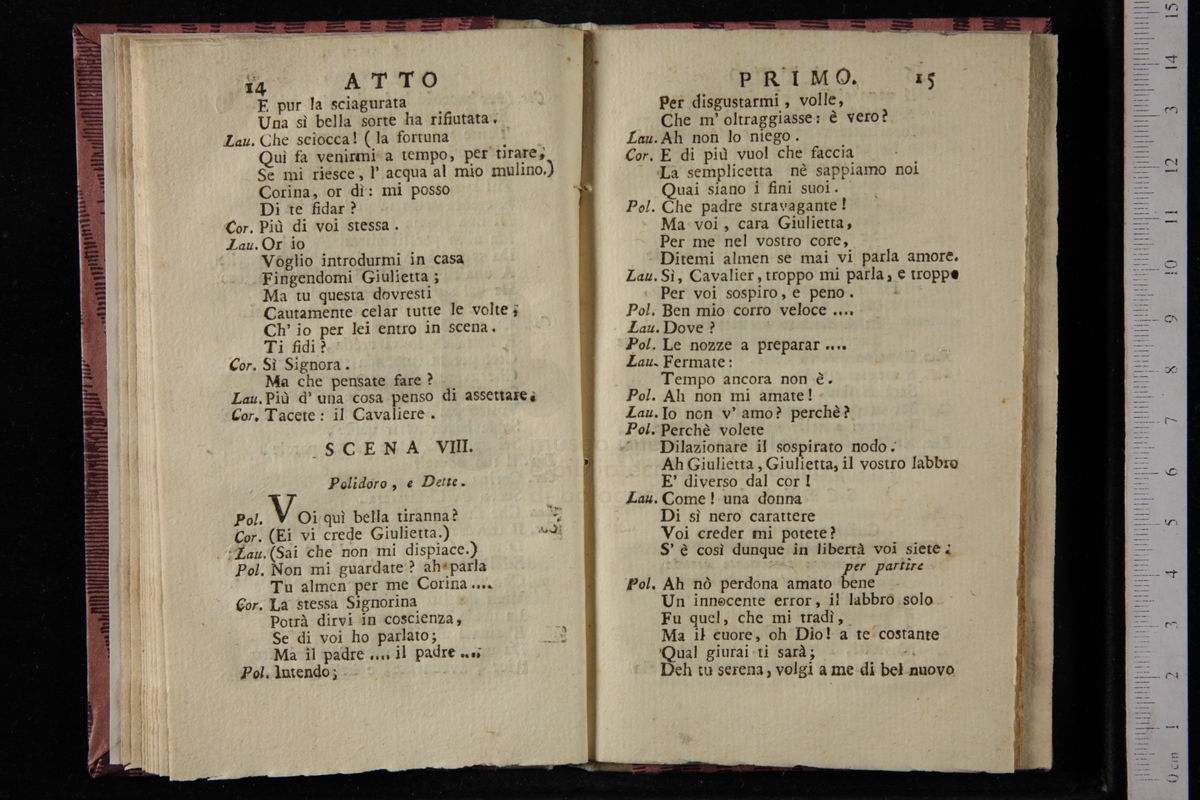 14 ATTO
E pur la sciagurata
Una sì bella sorte ha rifiutata.
Lau. Che sciocca! ( la fortuna
Quì fa venirmi a tempo, per tirare,
Se mi riesce, l' acqua al mio mulino.)
Corina, or dì: mi posso
Di te fidar?
Cor. Più di voi stessa.
Lau. Or io
Voglio introdurmi in casa
Fingendomi Giulietta;
Ma tu questa dovresti
Cautamente celar tutte le volte,
Ch' io per lei entro in scena.
Ti fidi?
Cor. Sì Signora.
Ma che pensate fare?
Lau. Più d' una cosa penso di assettare.
Cor. Tacete: il Cavaliere.
SCENA VIII.
Polidoro, e Dette.
Pol. VOi quì bella tiranna?
Cor. (Ei vi crede Giulietta.)
Lau. (Sai che non mi dispiace.)
Pol. Non mi guardate? ah parla
Tu almen per me Corina....
Cor. La stessa Signorina
Potrà dirvi in coscienza,
Se di voi ho parlato;
Ma il padre .... il padre ....
Pol. Intendo;
PRIMO. 15
Per disgustarmi, volle,
Che m' oltraggiasse: è vero?
Lau. Ah non lo niego.
Cor. E di più vuol che faccia
La semplicetta nè sappiamo noi
Quai siano i fini suoi.
Pol. Che padre stravagante!
Ma voi, cara Giulietta,
Per me nel vostro core,
Ditemi almen se mai vi parla amore.
Lau. Sì, Cavalier, troppo mi parla, e troppo
Per voi sospiro, e peno.
Pol. Ben mio corro veloce ....
Lau. Dove?
Pol. Le nozze a preparar ....
Lau. Fermate:
Tempo ancora non è.
Pol. Ah non mi amate!
Lau. Io non v' amo? perchè?
Pol. Perchè volete
Dilazionare il sospirato nodo.
Ah Giulietta, Giulietta, il vostro labbro
E' diverso dal cor!
Lau. Come! una donna
Di sì nero carattere
Voi creder mi potete?
S' è così dunque in libertà voi siete.
per partire
Pol. Ah nò perdona amato bene
Un innocente error, il labbro solo
Fu quel, che mi tradì,
Ma il cuore, oh Dio! a te costante
Qual giurai ti sarà;
Deh tu serena, volgi a me di bel nuovo
0 cm 1 2 3 4 5 6 7 8 9 10 11 12 13 14 15